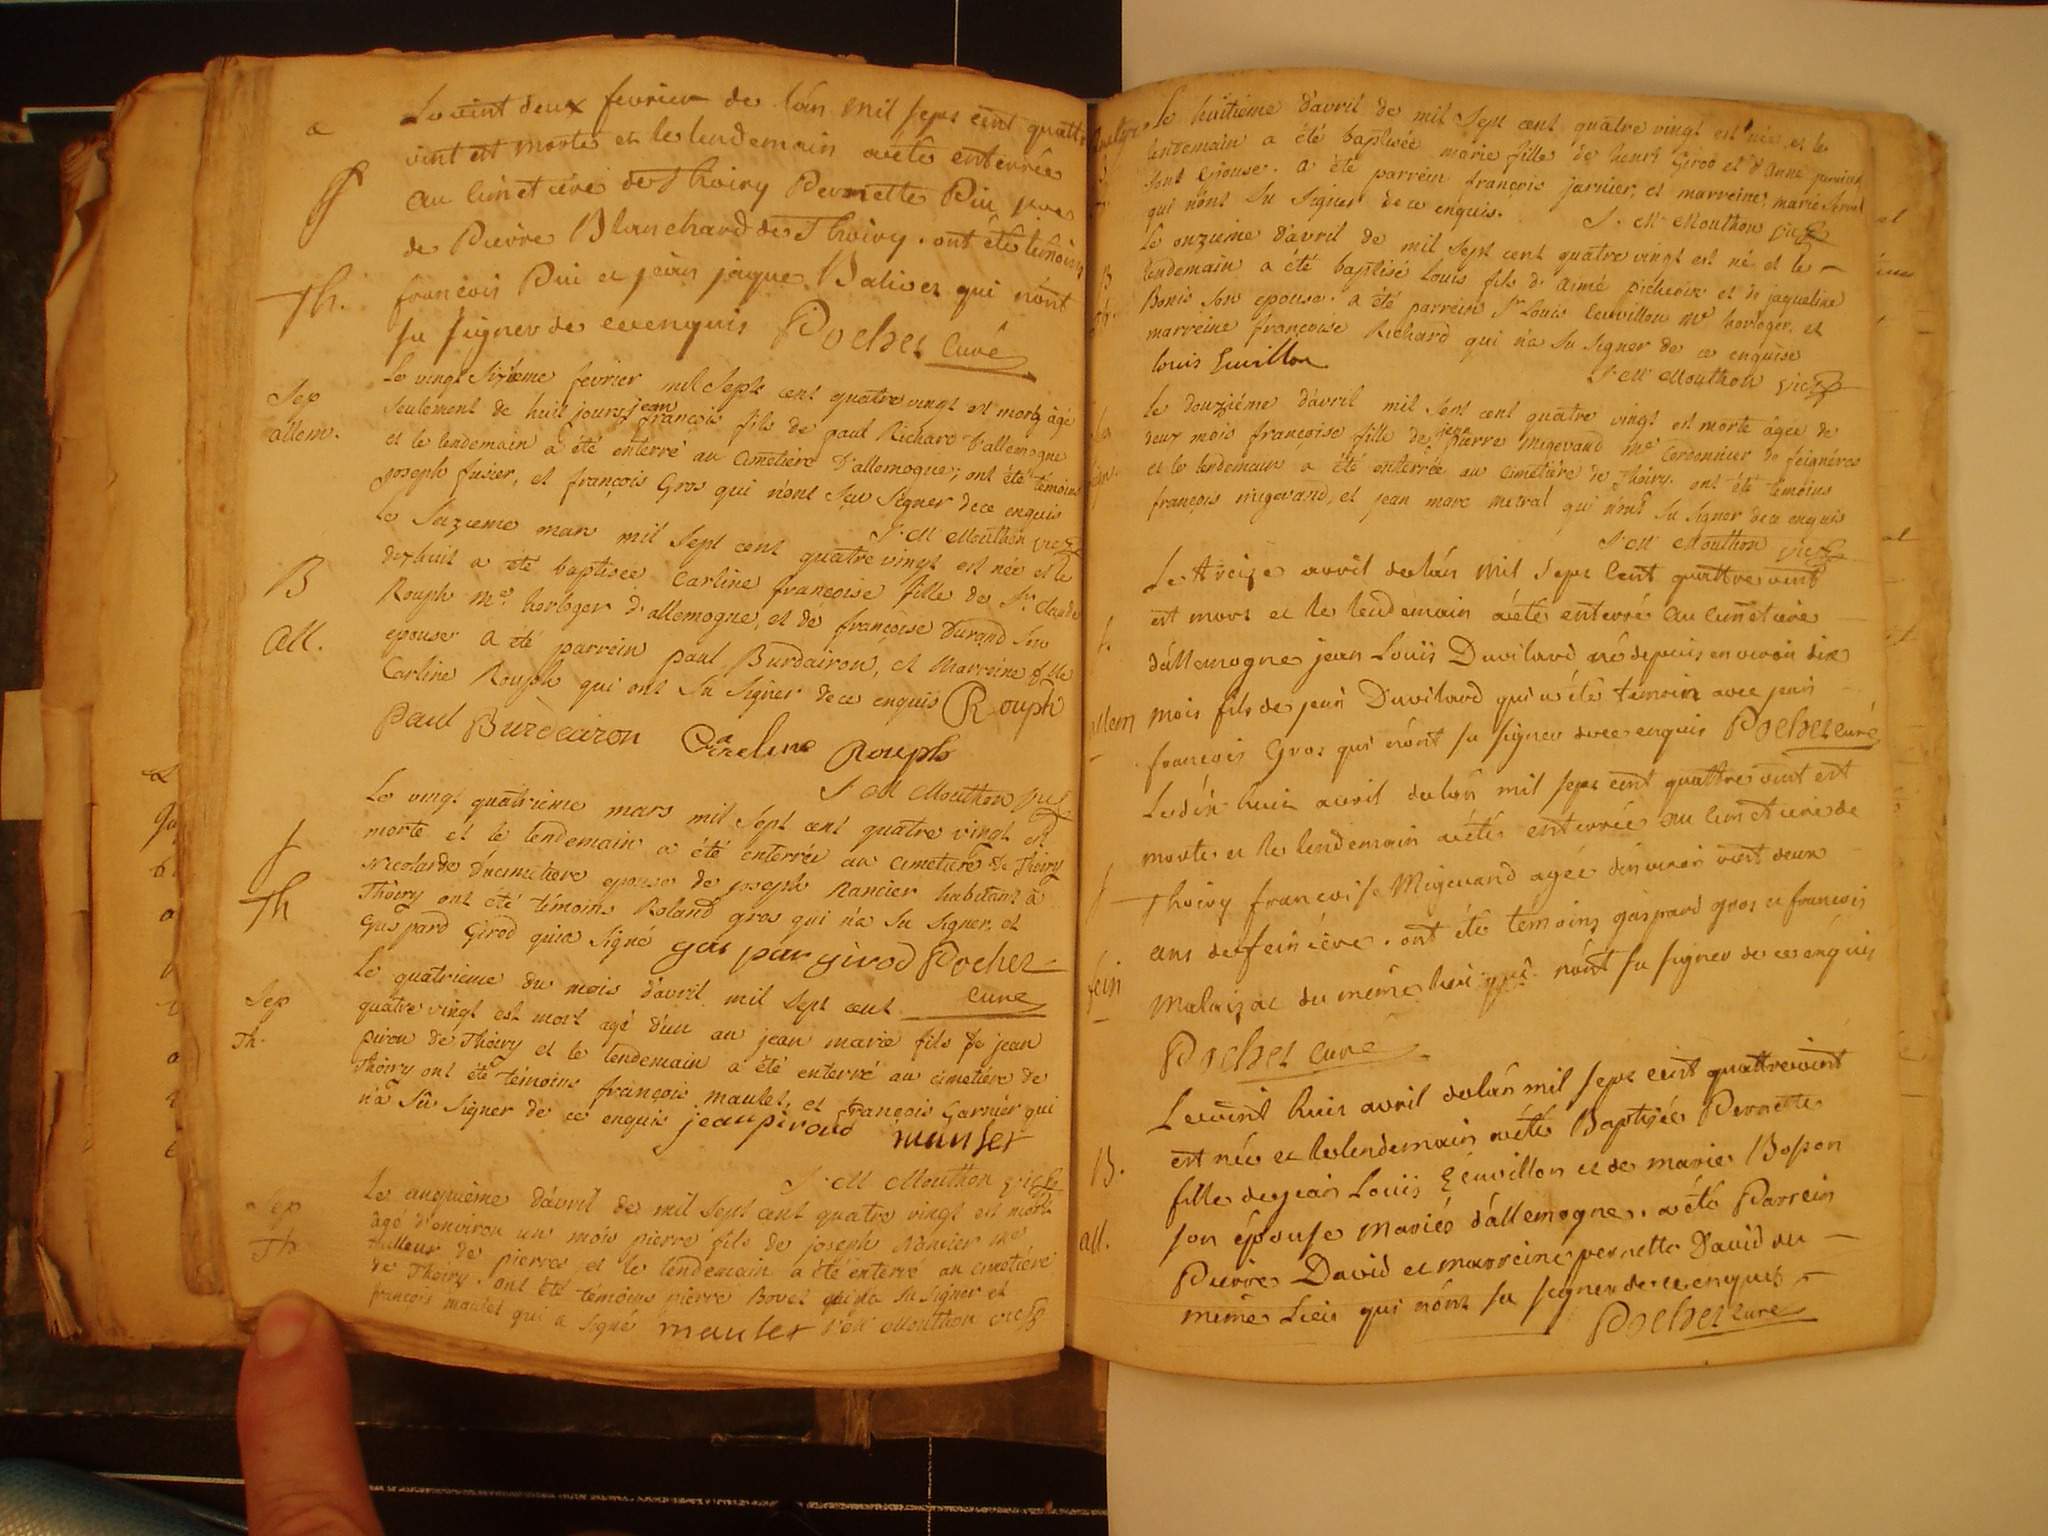 Le vint deux fevrier de lán mil sept cent quattre
vint est morte et le lendemain aété enterrée
au cimetiére de Thoiry Pernette Piu
de Pierre Blanchard de Thoiry. ont été témoins
françois Piu et jean jaque Balivet qui nónt
Th.
su signer de ce enquis Pochet Curé
Sep
allem.
Le vingt Sixieme fevrier mil Sept cent quatre vingt est mort, âgé
seulement de huit jours, jean françois fils de paul Richard D'allemogne
et le lendemain a été enterré au Cimetiére D'allemogne; ont été témoins
joseph fusier, et françois Gros qui n'ont Sçu Signer de ce enquis
J. M Mouthon vic
B
all.
le Seizieme mars mil Sept cent quatre vingt est née et le
dixhuit a été baptisée Carline françoise fille de Sr. Claude
Rouph me. horloger d'allemogne, et de françoise Durand son
epouse. a été parrein paul Burdairon, et Marreine
Carline Rouph qui ont Su Signer de ce enquis Rouph
Paul Burdeiron Careline Rouph
J M Mouthon vic
f
Th
Le vingt quatrieme mars mil Sept cent quatre vingt est
morte et le lendemain a été enterrée au cimetiére de Thoiry
Nicolarde Ducimetiere epouse de joseph Rancier habitant à
Thoiry ont été témoins Roland gros qui n'a Su Signer, et
Gaspard Girod qui a signé gaspar girod Pochet
Curé
Sep
Th.
Le quatrieme du mois d'avril mil Sept cent
quatre vingt est mort agé d'un an jean marie fils de jean
pirou de Thoiry et le lendemain a été enterré au cimetiére de
Thoiry ont été témoins françois maulet, et françois Garnier qui
n'a Sû Signer de ce enquis jean piroud maulet
J. M Mouthon vic
Sep
Th
Le cinquieme d'avril de mil Sept cent quatre vingt est mort
âgé d'environ un mois pierre fils de joseph Rancier me
tailleur de pierres et le lendemain a été enterré au cimetiére
de Thoiry. ont été témoins pierre Bovet qui n'a Su Signer et
françois maulet qui a Signé maulet J. M Mouthon vic
Le huitiéme d'avril de mil Sept cent quatre vingt est née, et le
lendemain a été baptisée marie fille de henri Girod et d'Anne
Sont epouse. a été parrein françois jarnier, et marreine, marie
qui nónt Su Signer de ce enquis. J. M Mouthon vic
Le onzieme d'avril de mil Sept cent quatre vingt est né et le
lendemain a été baptisé Louis fils d'Aimé et de jaqueline
Bonis Son epouse. a été parrein Sr Louis Cuvillon me horloger, et
marreine françoise Richard qui n'a Su Signer de ce enquise
louis
J. M Mouthon vic
Le douziéme d'avril mil Sept cent quatre vingt est morte âgée de
deux mois françoise fille de jean pierre migevand me Cordonnier de feignéres
et le lendemain a été enterrée au cimetiére de Thoiry. ont été témoins
françois migevand, et jean marc metral qui n'ont Su Signer de ce enquis
J. M Mouthon vic
Le treize avril de lán mil sept Cent quattre vint
est mort et le lendemain aété enterré au cimetiére
dállemogne jean Louïs Davilard né depuis environ dix
allem mois fils de jean Davilard qui a été témoin avec jean
françois Gros qui nónt su signer de ce enquis Pochet curé
Le dix huit avril de lán mil sept cent quattre vint est
morte et le lendemain aété enterrée au cimetiére de
Thoiry francoise Migevand agée dénviron vint deux
ans de feiniére. ont été temoins gaspard gros et françois
fein
Malaizac du même lieu qui nónt su signer de ce enquis
Pochet curé
Le vint huit avril de lán mil sept cent quattrevint
B.
est née et le lendemain aété Baptisée Pernette
fille de jean Louïs et de marie Bosson
all.
son épouse mariés dállemogne. aété Parrein
Pierre David et marreine pernette David du
même Lieu qui nónt su signer de ce enquis
Pochet curé